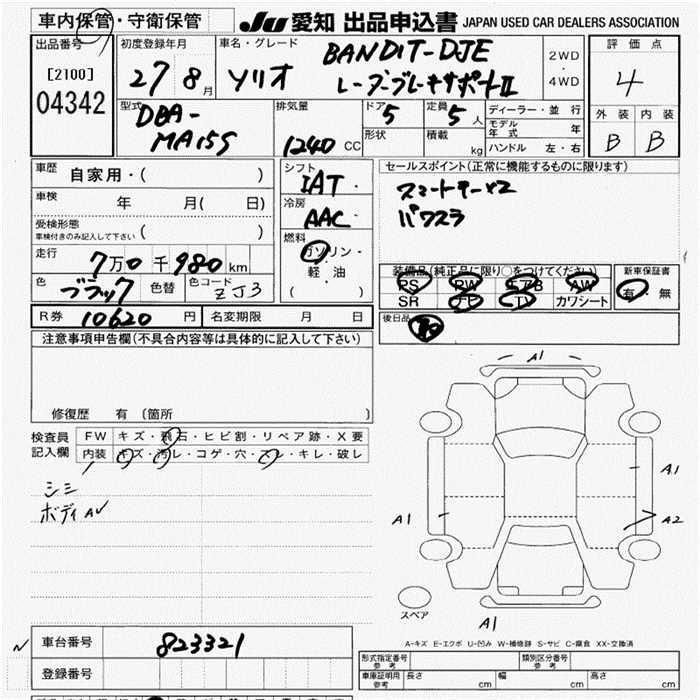 車内保管・守衛保管
JU 愛知 出品申込書 JAPAN USED CAR DEALERS ASSOCIATION
出品番号
[2100]
04342
初度登録年月
27 8月
車名・グレード
ソリオ
BANDIT-DJE
レーダーブレーキサポートII
2WD
・
4WD
評価点
4
外装 内装
B B
型式
DBA-
MA15S
排気量
1240 CC
ドア 5
形状
定員 5 人
積載 kg
ディーラー・並行
モデル年式 年
ハンドル 左・右
車歴 自家用・( )
車検 年 月( 日)
受検形態
車検付きのみ記入して下さい ( )
走行 7万0千980km
色 ブラック 色替 色コード ZJ3
シフト
IAT・
冷房
AAC
燃料
ガソリン・
軽・油
( )
セールスポイント(正常に機能するものに限ります)
スマートキー×2
パワスラ
装備品(純正品に限り○をつけてください)
PS PW エアB AW
SR ナビ TV カワシート
新車保証書
有・無
後日品
R券 10620円 名変期限 月 日
注意事項申告欄(不具合内容等は具体的に記入して下さい)
修復歴 有(箇所 )
検査員
記入欄
FW キズ・飛石・ヒビ割・リペア跡・X要
内装 キズ・汚レ・コゲ・穴・スレ・キレ・破レ
シミ
ボディAU
A1
A1
A1
A2
スペア
A1
A-キズ E-エクボ U-凹み W-補修跡 S-サビ C-腐食 XX-交換済
車台番号 823321
登録番号
形式指定番号 参考
類別区分番号 参考
車庫証明用 参考 長さ cm 幅 cm 高さ cm